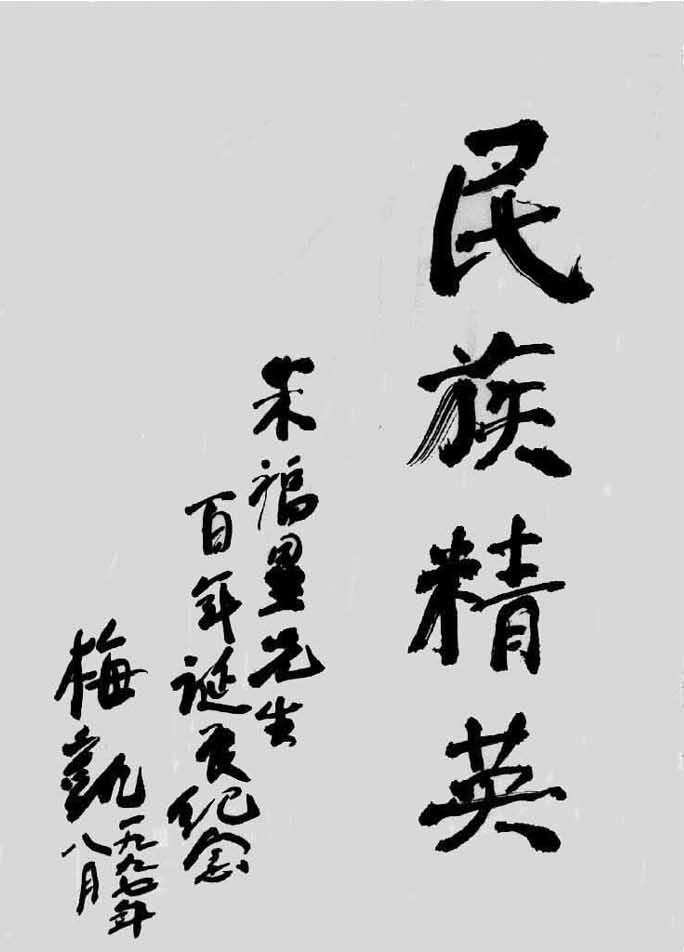 民族精英
朱福星先生
百年诞辰纪念
梅凯
一九九七年
八月